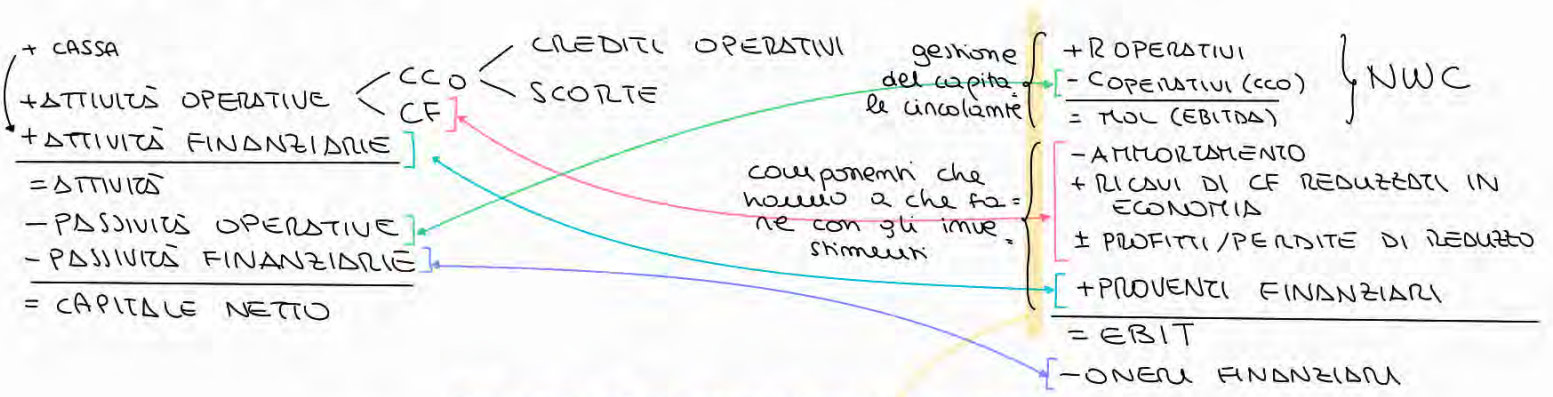 + CASSA
+ ATTIVITÀ OPERATIVE
CCO
CF
CREDITI OPERATIVI
SCORTE
+ ATTIVITÀ FINANZIARIE
= ATTIVITÀ
- PASSIVITÀ OPERATIVE
- PASSIVITÀ FINANZIARIE
= CAPITALE NETTO
gestione
del capita=
le circolante
+ R OPERATIVI
- C OPERATIVI (CCO)
= MOL (EBITDA)
NWC
componenti che
hanno a che fa=
re con gli inve=
stimenti
- AMMORTAMENTO
+ RICAVI DI CF REALIZZATI IN
ECONOMIA
± PROFITTI/PERDITE DI REALIZZO
+ PROVENTI FINANZIARI
= EBIT
- ONERI FINANZIARI